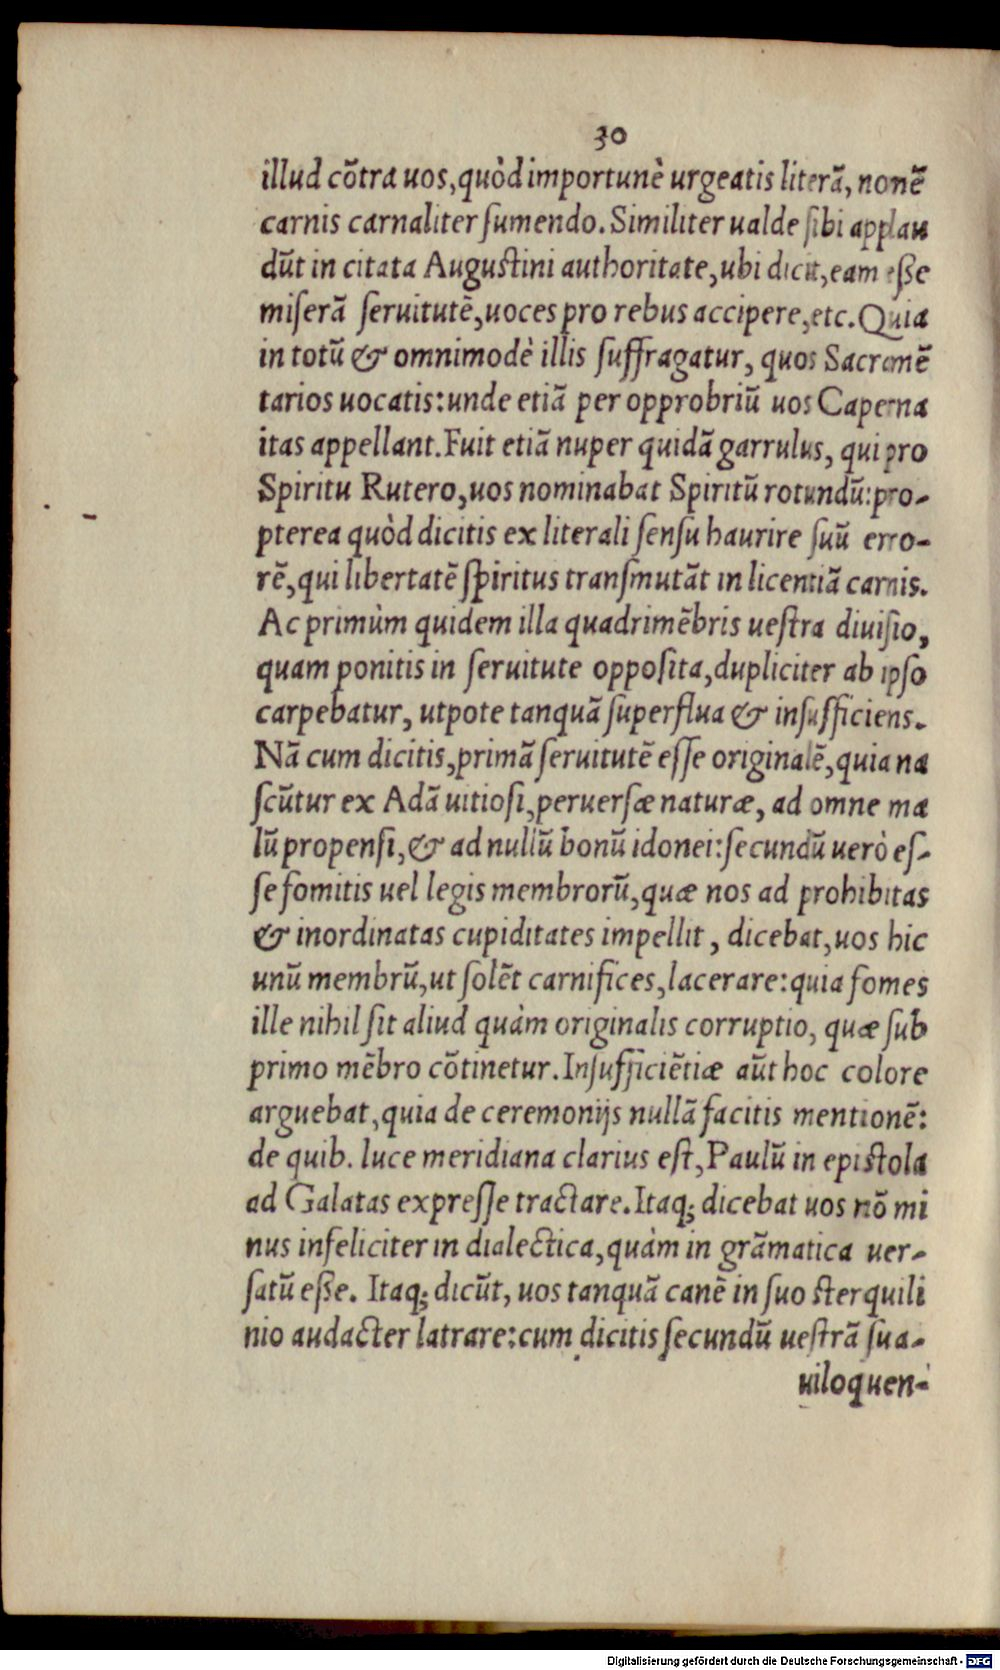 30
illud cõtra uos, quòd importunè urgeatis literã, nonẽ
carnis carnaliter ſumendo. Similiter ualde ſibi applau
dũt in citata Auguſtini authoritate, ubi dicit, eam eſße
miſerã ſeruitutẽ, uoces pro rebus accipere, etc. Quia
in totũ & omnimodè illis ſuffragatur, quos Sacramẽ
tarios uocatis: unde etiã per opprobriũ uos Caperna
itas appellant. Fuit etiã nuper quidã garrulus, qui pro
Spiritu Rutero, uos nominabat Spiritũ rotundũ: pro-
pterea quòd dicitis ex literali ſenſu haurire ſuũ erro-
rẽ, qui libertatẽ ſpiritus tranſmutãt in licentiã carnis.
Ac primùm quidem illa quadrimẽbris ueſtra diuiſio,
quam ponitis in ſeruitute oppoſita, dupliciter ab ipſo
carpebatur, utpote tanquã ſuperflua & inſufficiens.
Nã cum dicitis, primã ſeruitutẽ eſſe originalẽ, quia na
ſcũtur ex Adã uitioſi, peruerſæ naturæ, ad omne ma
lũ propenſi, & ad nullũ bonũ idonei: ſecundũ uerò eſ-
ſe fomitis uel legis membrorũ, quæ nos ad prohibitas
& inordinatas cupiditates impellit, dicebat, uos hic
unũ membrũ, ut ſolẽt carnifices, lacerare: quia fomes
ille nihil ſit aliud quàm originalis corruptio, quæ ſub
primo mẽbro cõtinetur. Inſufficiẽtiæ aũt hoc colore
arguebat, quia de ceremonijs nullã facitis mentionẽ:
de quib. luce meridiana clarius eſt, Paulũ in epiſtola
ad Galatas expreſſe tractare. Itaq; dicebat uos nõ mi
nus infeliciter in dialectica, quàm in grãmatica uer-
ſatũ eſße. Itaq; dicũt, uos tanquã canẽ in ſuo ſterquili
nio audacter latrare: cum dicitis ſecundũ ueſtrã ſua-
uiloquen-
Digitalisierung gefördert durch die Deutsche Forschungsgemeinschaft - DFG